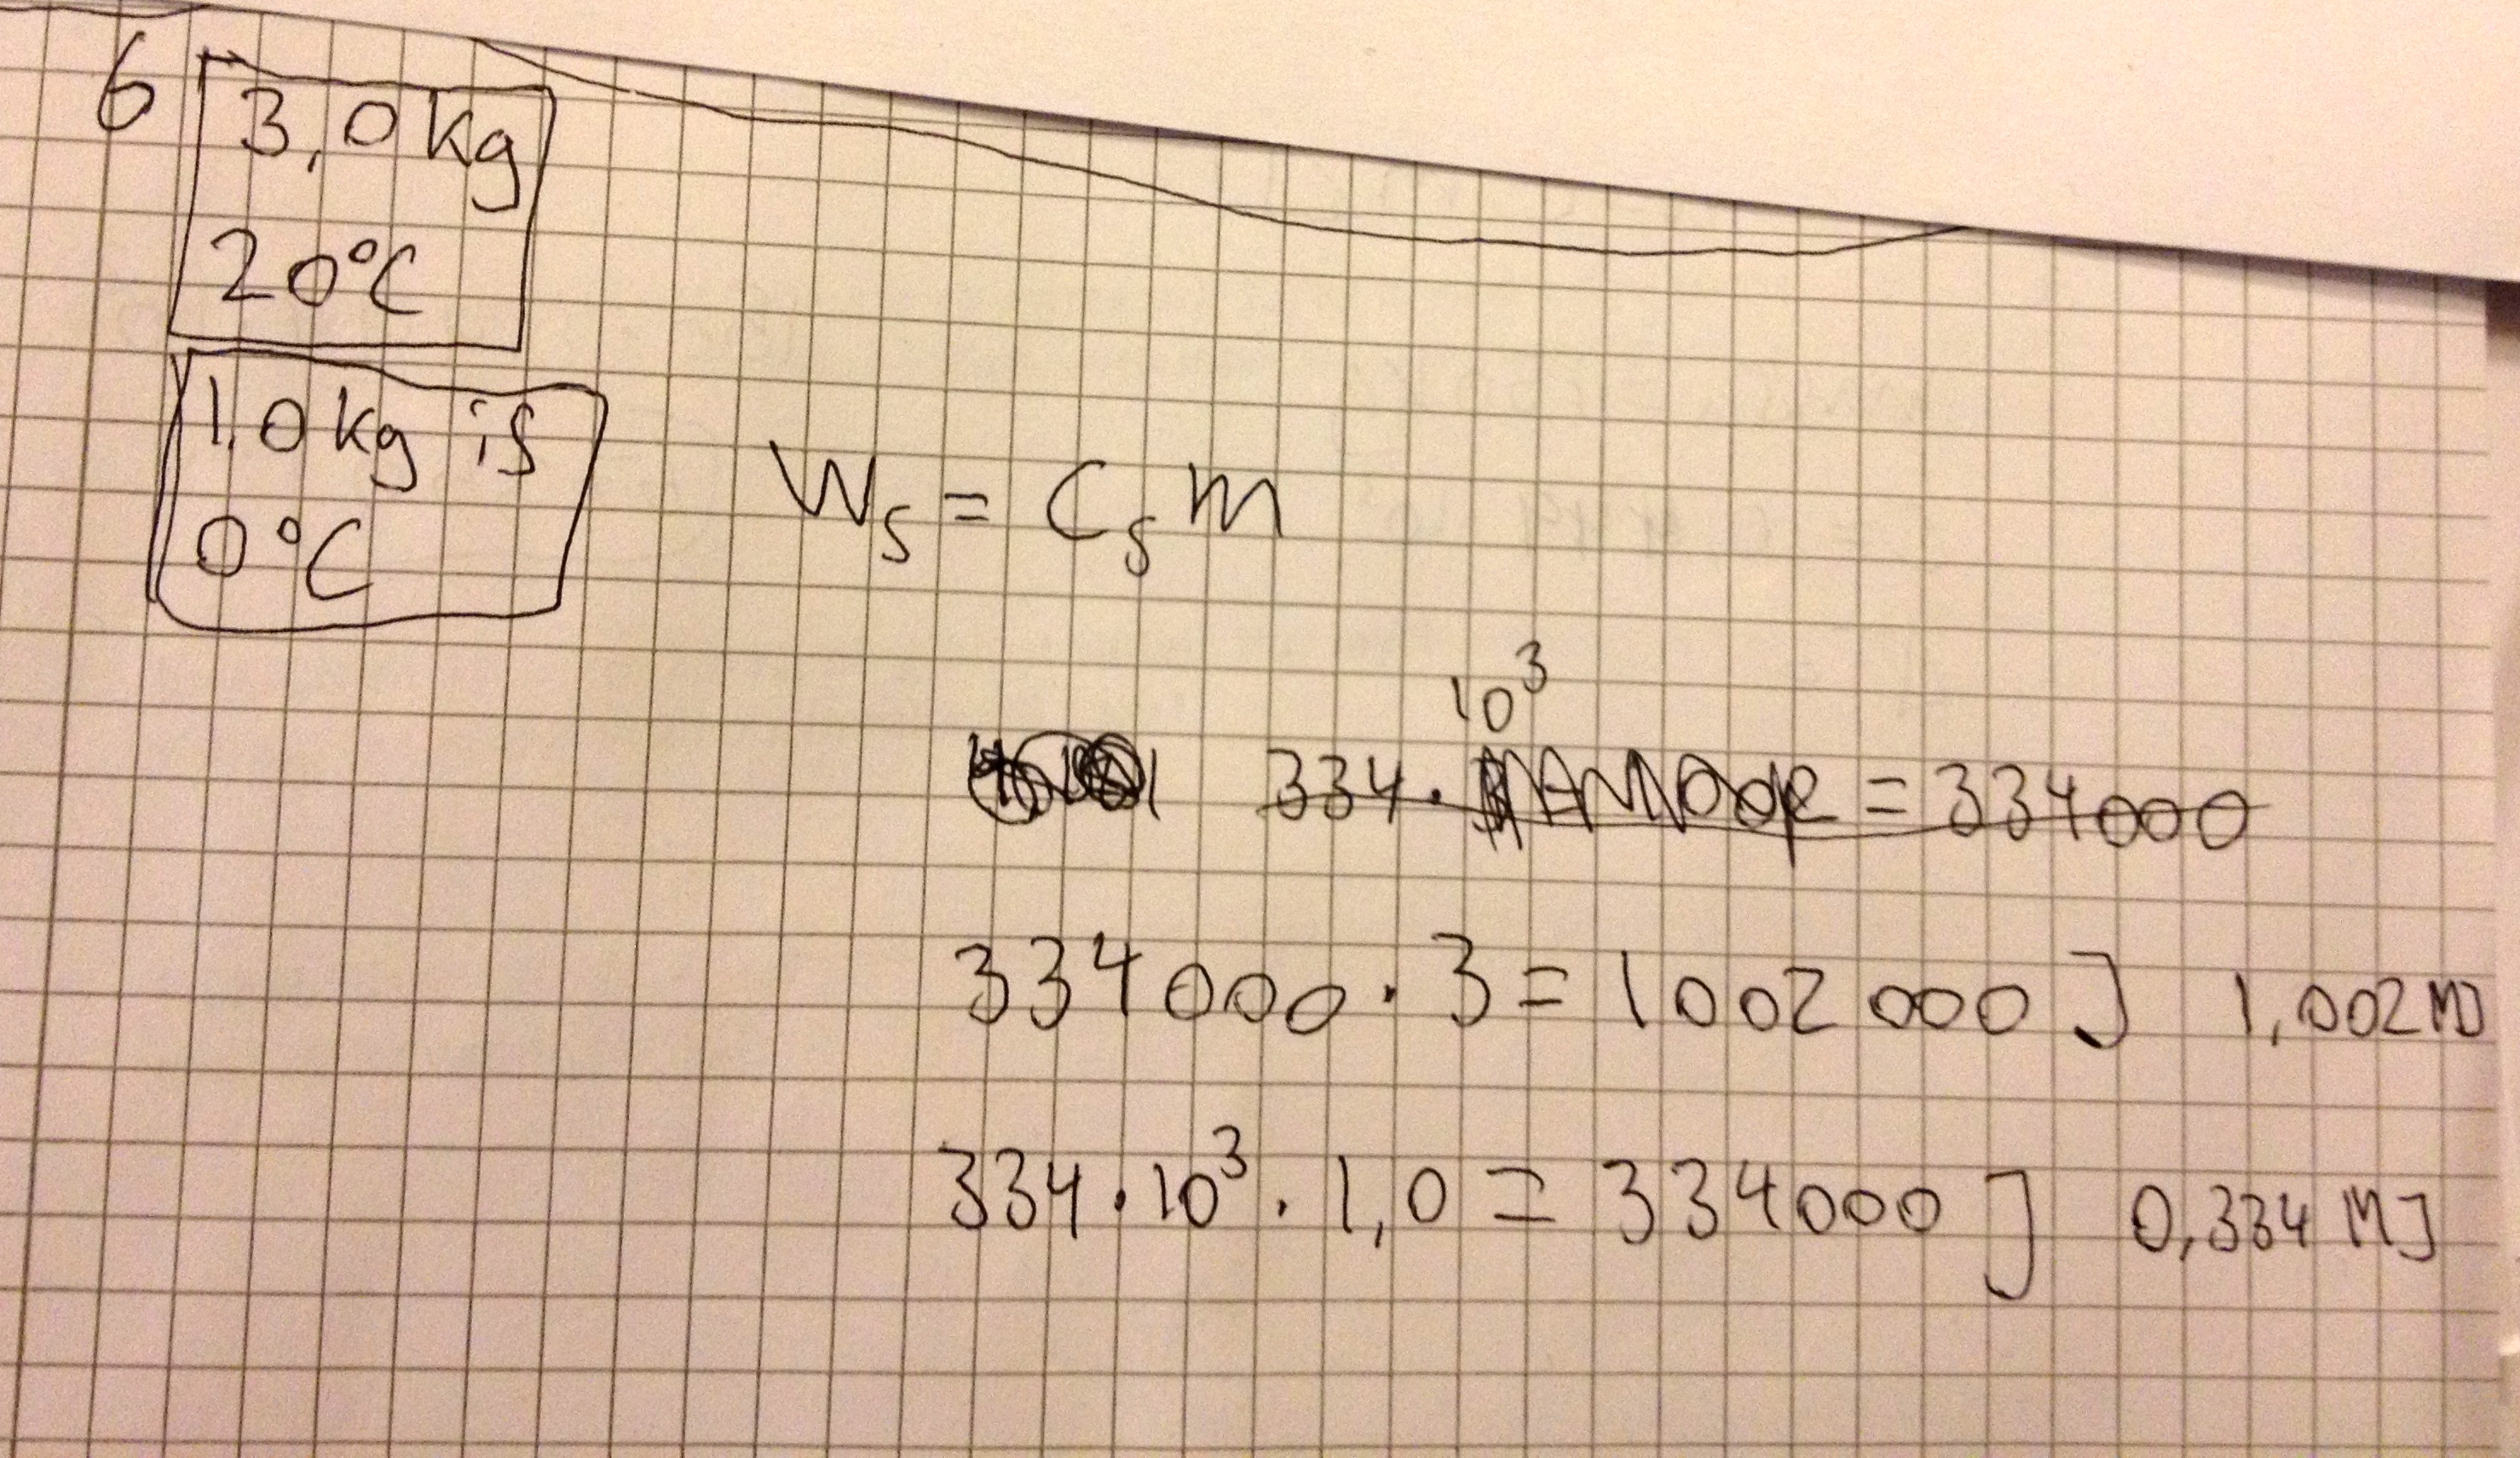 6
3,0 kg
20°C
1,0 kg is
0°C
Ws = Csm
10³
334 · = 334000
334000 · 3 = 1002000 J 1,002 MJ
334 · 10³ · 1,0 = 334000 J 0,334 MJ